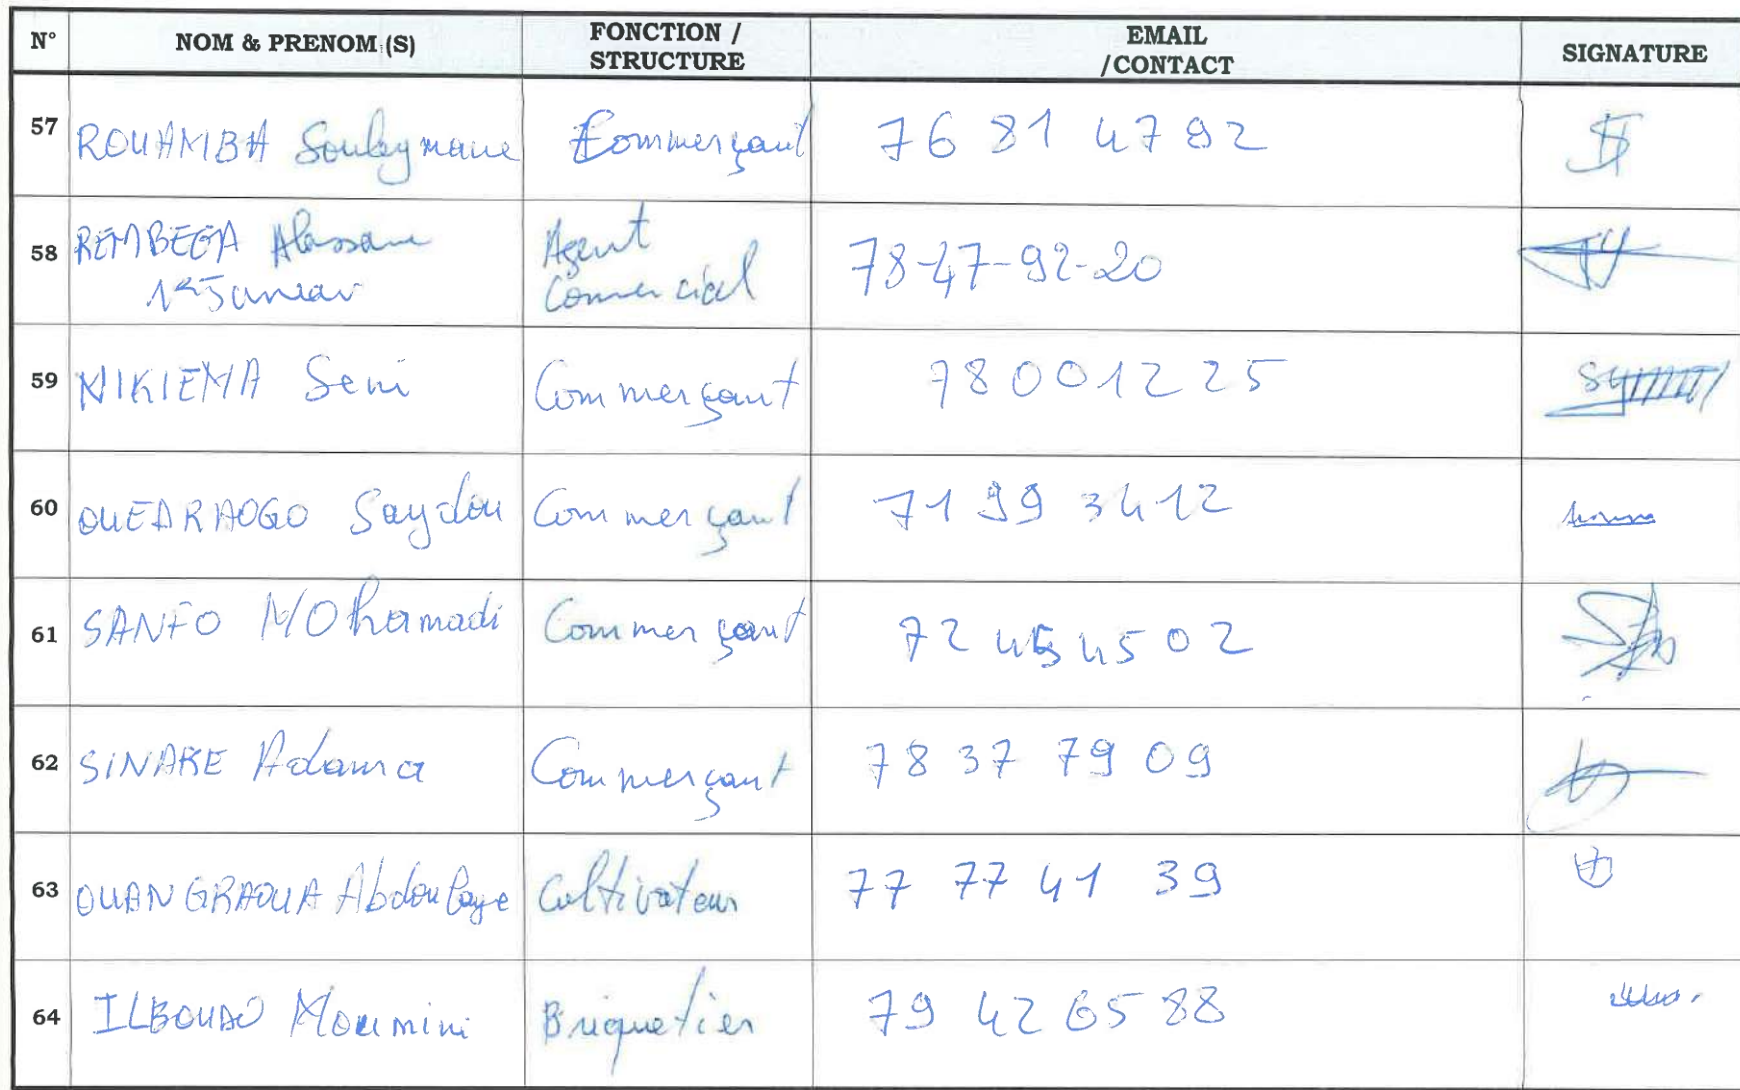 N° NOM & PRENOM (S) FONCTION / STRUCTURE EMAIL /CONTACT SIGNATURE
57 ROUAMBA Souleymane Commerçant 76 81 47 92
58 REMBEGA Alassane Agent Comercial 78-47-92-20
59 NIKIEMA Seni Commerçant 78001225
60 OUEDRAOGO Saydou Commerçant 71 99 34 12
61 SANFO MOhamadi Commerçant 72 45 45 02
62 SINARE Adama Commerçant 78 37 79 09
63 OUANGRAOUA Abdoulaye Cultivateur 77 77 41 39
64 ILBOUDO Moumini Briquetier 79 42 65 88